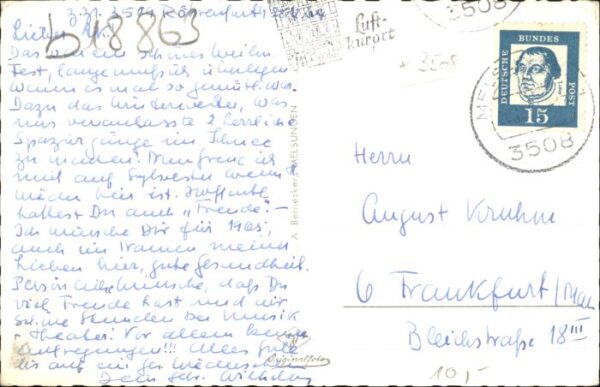 b18863
z.Zt. 3501
Lieber
Das war ein schönes Weihn.
Fest, lange muß ich überlegen
wann es mal so gemütl. war.
Dazu das Winterwetter, was
uns veranlasste 2 herrliche
Spaziergänge im Schnee
zu machen! Nun freue ich
mich auf Sylvester wenn
wieder hier ist. Hoffentl.
hattest Du auch "Freude".-
Ich wünsche Dir für 1965,
auch im Namen meiner
Lieben hier, gute Gesundheit.
Persönliche Wünsche, daß Du
viel Freude hast und wir
schöne Stunden der Musik
+ Theater! Vor allem keine
Aufregungen!!! Alles Gute
bis auf ein frohes Wiedersehen
Dein
A. Bernecker, MELSUNGEN
Originalfoto
Luft-
kurort
3508
DEUTSCHE BUNDES POST
15
3508
Herrn
August Kruhm
6 Frankfurt/Main
Bleichstraße 18 III
10,-